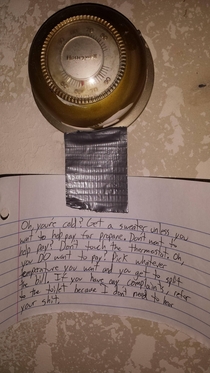 Honeywell
Oh, you're cold? Get a sweater unless you
want to help pay for propane. Don't want to
help pay? Don't touch the thermostat. Oh,
you DO want to pay? Pick whatever
temperature you want and you get to split
the bill. If you have any complaints, refer
to the toilet because I don't need to hear
your shit.